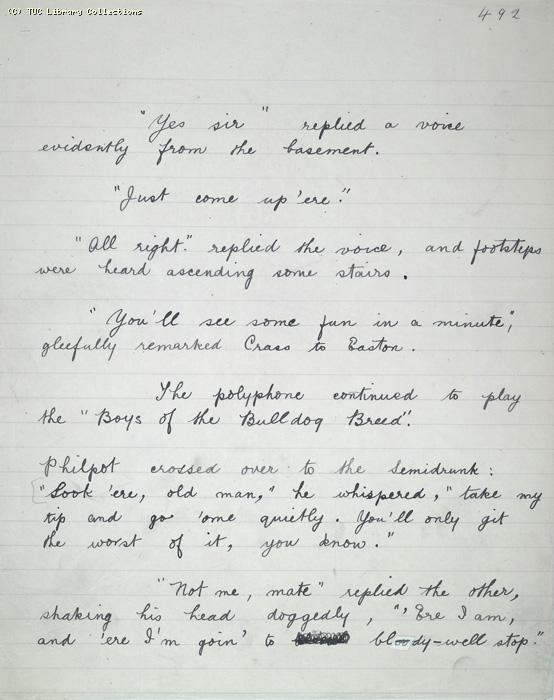 (C) TUC Library Collections
492
"Yes sir" replied a voice
evidently from the basement.
"Just come up 'ere."
"All right." replied the voice, and footsteps
were heard ascending some stairs.
"You'll see some fun in a minute",
gleefully remarked Crass to Easton.
The polyphone continued to play
the "Boys of the Bulldog Breed".
Philpot crossed over to the Semidrunk:
"Look 'ere, old man," he whispered, "take my
tip and go 'ome quietly. You'll only git
the worst of it, you know."
"Not me, mate" replied the other,
shaking his head doggedly, "'Ere I am,
and 'ere I'm goin' to bloody-well stop."